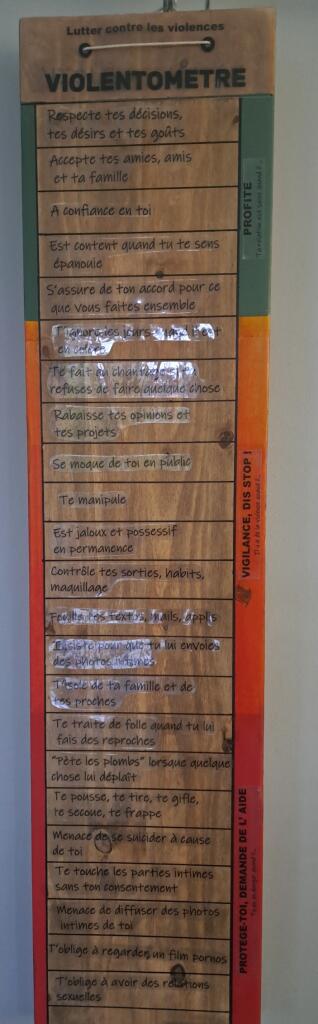 Lutter contre les violences
VIOLENTOMETRE
Respecte tes décisions,
tes désirs et tes goûts
Accepte tes amies, amis
et ta famille
A confiance en toi
Est content quand tu te sens
épanouie
S'assure de ton accord pour ce
que vous faites ensemble
PROFITE
Ta relation est saine quand il...
T'ignore les jours quand il est
en colère
Te fait du chantage si tu
refuses de faire quelque chose
Rabaisse tes opinions et
tes projets
Se moque de toi en public
Te manipule
Est jaloux et possessif
en permanence
Contrôle tes sorties, habits,
maquillage
Fouille tes textos, mails, applis
Insiste pour que tu lui envoies
des photos intimes
T'isole de ta famille et de
tes proches
VIGILANCE, DIS STOP !
Il y a de la violence quand il...
Te traite de folle quand tu lui
fais des reproches
"Pète les plombs" lorsque quelque
chose lui déplaît
Te pousse, te tire, te gifle,
te secoue, te frappe
Menace de se suicider à cause
de toi
Te touche les parties intimes
sans ton consentement
Menace de diffuser des photos
intimes de toi
T'oblige à regarder un film pornos
T'oblige à avoir des relations
sexuelles
PROTEGE-TOI, DEMANDE DE L' AIDE
Tu es en danger quand il...